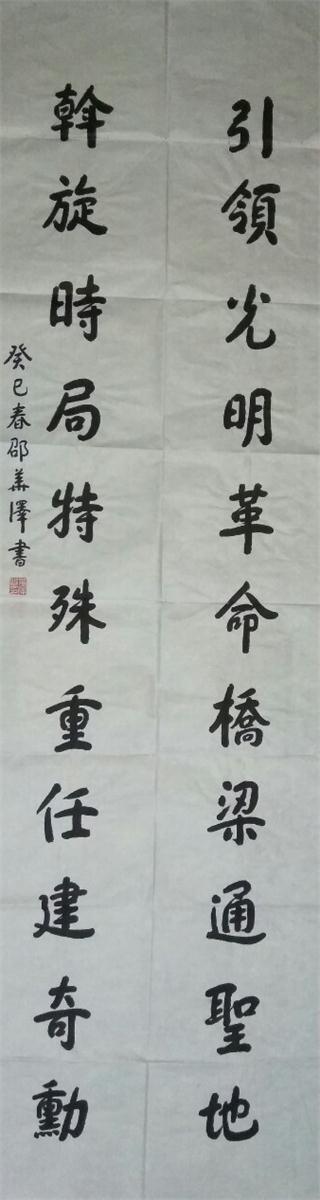 引領光明革命橋梁通聖地
斡旋時局特殊重任建奇勳
癸巳春邵華澤書